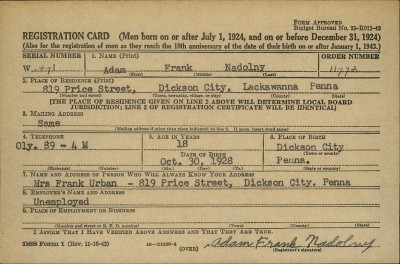 FORM APPROVED
Budget Bureau No. 33-R012-42
REGISTRATION CARD (Men born on or after July 1, 1924, and on or before December 31, 1924)
(Also for the registration of men as they reach the 18th anniversary of the date of their birth on or after January 1, 1943.)
SERIAL NUMBER 1. NAME (Print) ORDER NUMBER
Adam Frank Nadolny
(First) (Middle) (Last)
2. PLACE OF RESIDENCE (Print)
819 Price Street, Dickson City, Lackawanna Penna
(Number and street) (Town, township, village, or city) (County) (State)
[THE PLACE OF RESIDENCE GIVEN ON LINE 2 ABOVE WILL DETERMINE LOCAL BOARD
JURISDICTION; LINE 2 OF REGISTRATION CERTIFICATE WILL BE IDENTICAL]
3. MAILING ADDRESS
Same
(Mailing address if other than place indicated on line 2. If same, insert word same)
4. TELEPHONE 5. AGE IN YEARS 6. PLACE OF BIRTH
Oly. 89 - 4 M 18 Dickson City
DATE OF BIRTH (Town or county)
Oct. 30, 1928 Penna.
(Exchange) (Number) (Mo.) (Day) (Yr.) (State or country)
7. NAME AND ADDRESS OF PERSON WHO WILL ALWAYS KNOW YOUR ADDRESS
Mrs Frank Urban - 819 Price Street, Dickson City. Penna
8. EMPLOYER'S NAME AND ADDRESS
Unemployed
9. PLACE OF EMPLOYMENT OR BUSINESS
(Number and street or R. F. D. number) (Town) (County) (State)
I AFFIRM THAT I HAVE VERIFIED ABOVE ANSWERS AND THAT THEY ARE TRUE.
DSS Form 1 (Rev. 11-16-42) (OVER) Adam Frank Nadolny
(Registrant's signature)